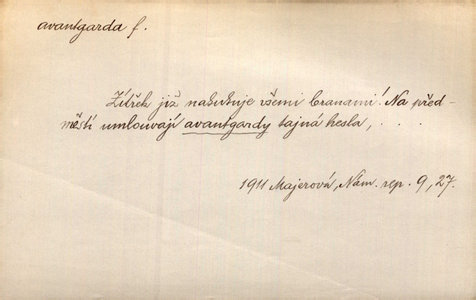 avantgarda f.
Zítřek již nabubuje všemi branami! Na před-
městí umlouvají avantgardy tajná hesla, . . .
1911 Majerová, Nám. rep. 9, 27.